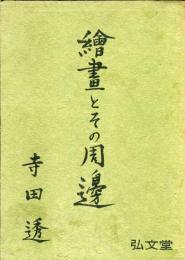 繪畫とその周邊
寺田透
弘文堂